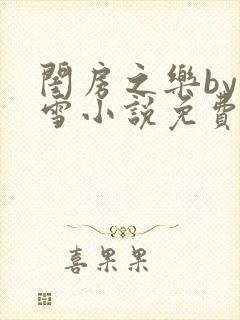 閨房之樂by
雪小說免費
喜果果